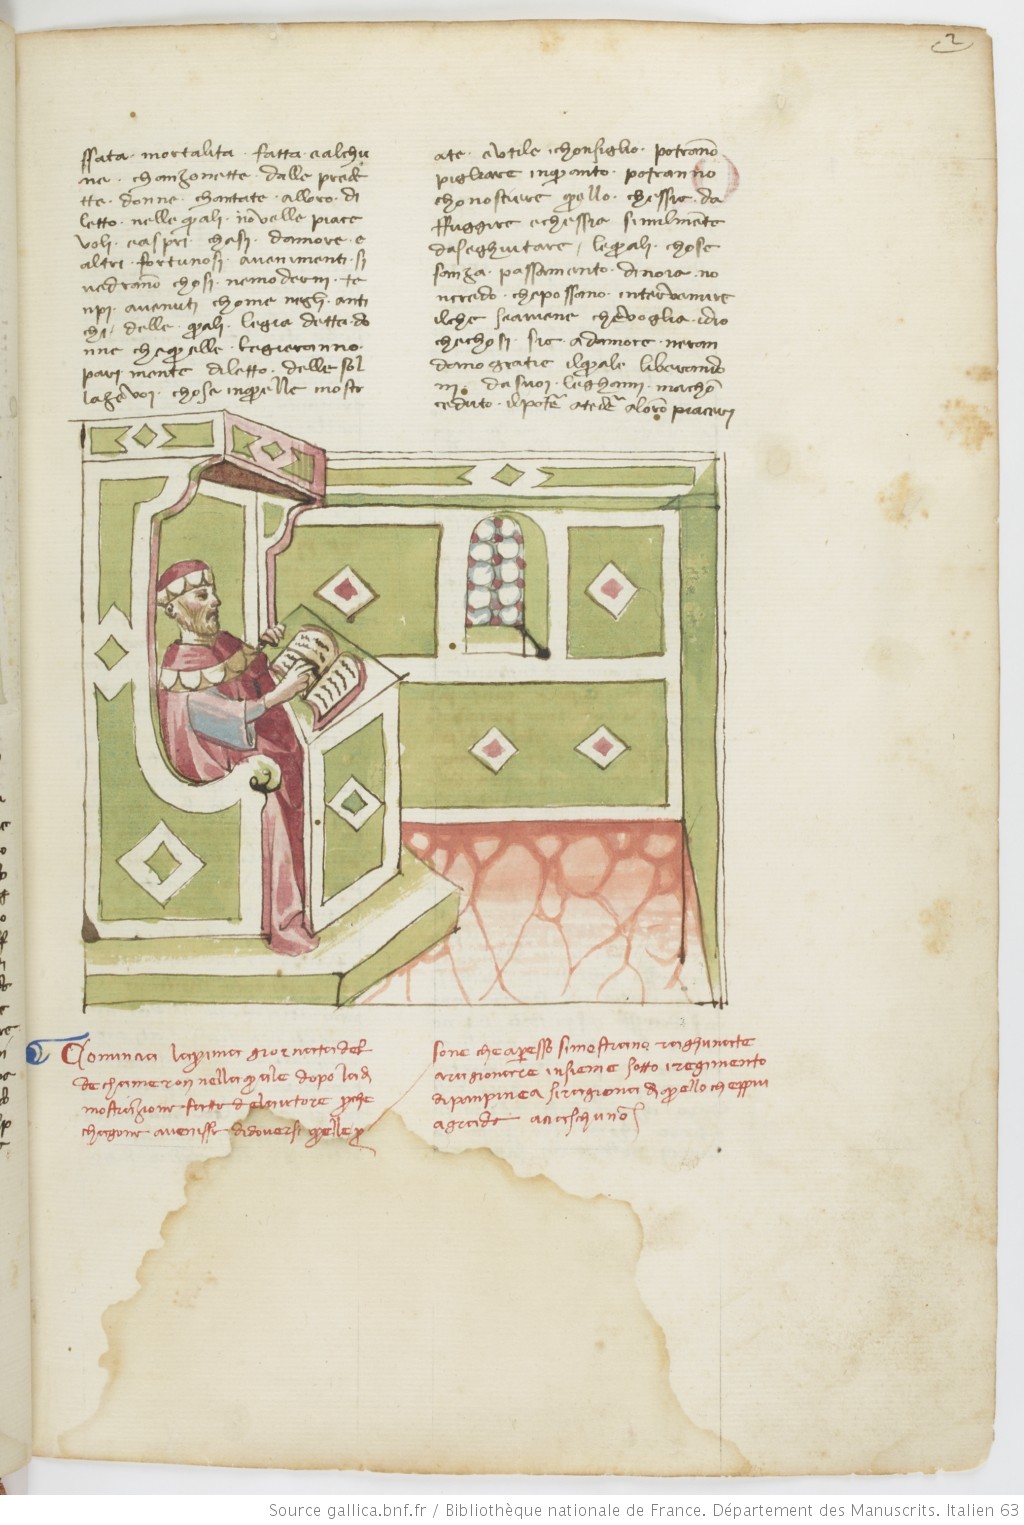 2
ssata · mortalita · fatta · ealchu
ne · chanzonette · dalle prede
tte · donne · chantate · alloro · di
letto · nelle quali · novelle piace
voli · easpri · chasi · damore · e
altri · fortunosi · avenimenti · si
vedranno chosi · nemoderni · te
npi · avenuti chome negli · anti
chi · delle · quali · legia dette · do
nne chequelle · legieranno ·
pari mente diletto · delle sol
lazevoi · chose inquelle mostr
ate · eutile · chonsiglio · potranno
pigliare inquanto · potranno
chonosciere quello · chessie · da
ffuggire echessia similmente
daseghuitare / lequali · chose
sanza · passamento · dinoia · no
ncredo · chepossano · intervenire
ilche seaviene che voglia · idio
chechosi · sia adamore · neran
dano gratie ilquale liberando
mi · dasuoi · leghami · machon
ceduto · ilpoter atender aloro piaceri
Comincia laprima giornata del
dechameron nella quale dopo la di
mostrazione fatta delautore perche
chagione avenisse didoversi quelle per
sone cheapresso simostrano raghunate
aragionare insieme sotto iregimento
dipanpinea siragiona di quello cheppiu
agrada aciaschuno
Source gallica.bnf.fr / Bibliothèque nationale de France. Département des Manuscrits. Italien 63